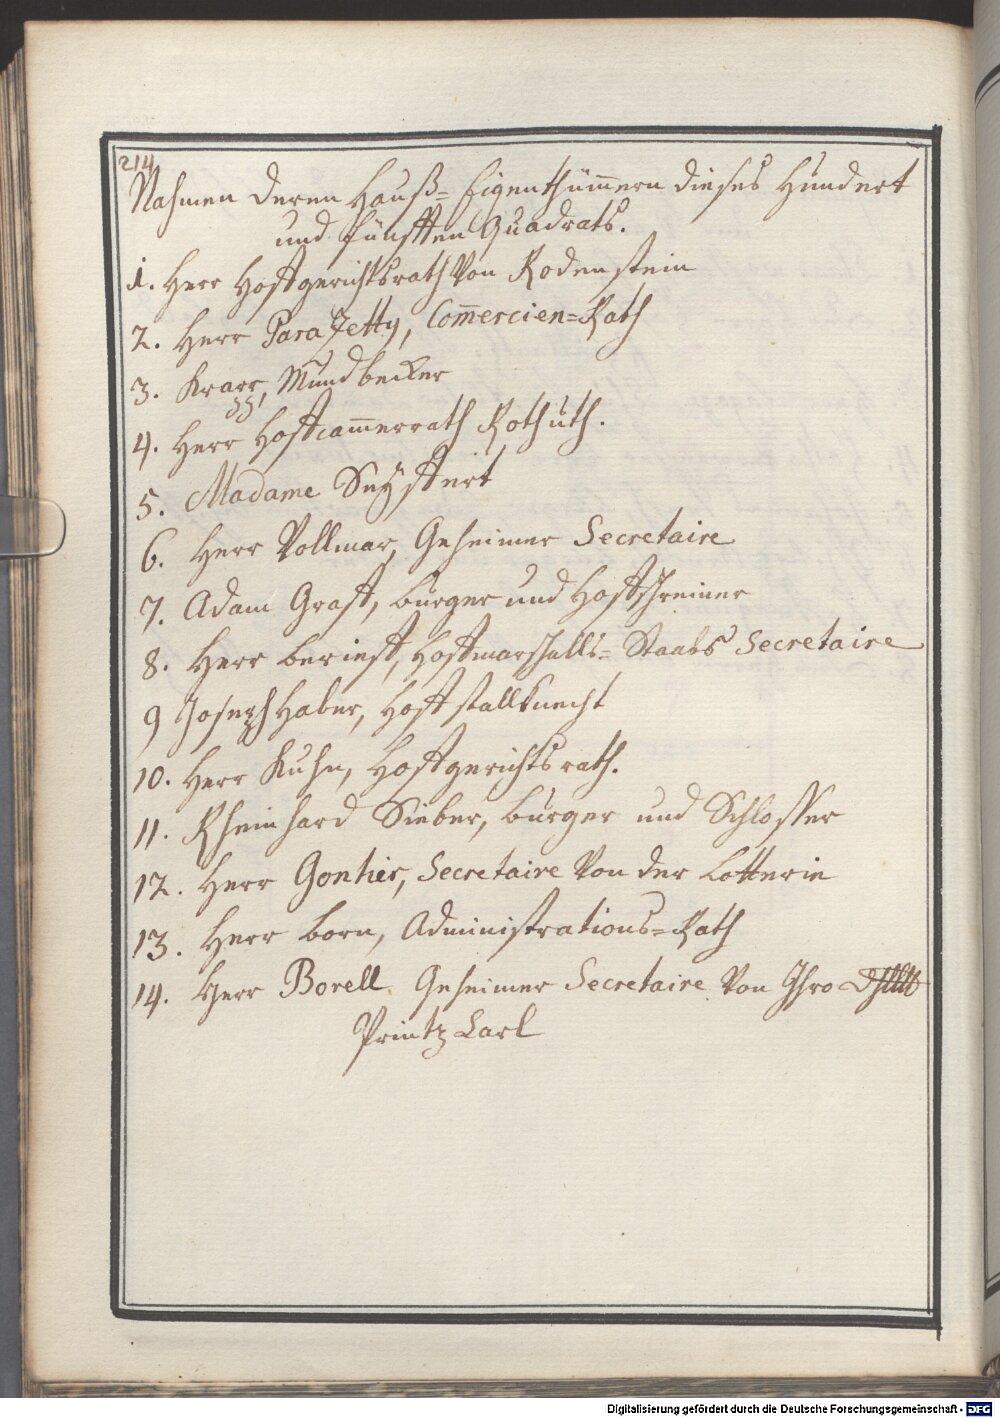 214
Nahmen deren Hauß= Eigenthümern dieses Hundert
und fünfften Quadrats.
1. Herr Hoffgerichtsrath Von Rodenstein
2. Herr Para Jetty, Com̅ercien=Rath
3. Krapp, Mundbecker
4. Herr Hoffcam̅errath Rothuth.
5. Madame Seÿffert
6. Herr Vollmar, Geheimer Secretaire
7. Adam Graff, burger und Hoffschreiner
8. Herr beriest, Hoffmarschalls= Staabs Secretaire
9 Joseph Haber, Hoff stallknecht
10. Herr Kuhn, Hoffgerichtsrath.
11. Rheinhard Sieber, burger und Schlosser
12. Herr Gontier, Secretaire Von der Lotterie
13. Herr born, Administrations=Rath
14. Herr Borell Geheimer Secretaire Von Ihro
Printz Carl
Digitalisierung gefördert durch die Deutsche Forschungsgemeinschaft - DFG